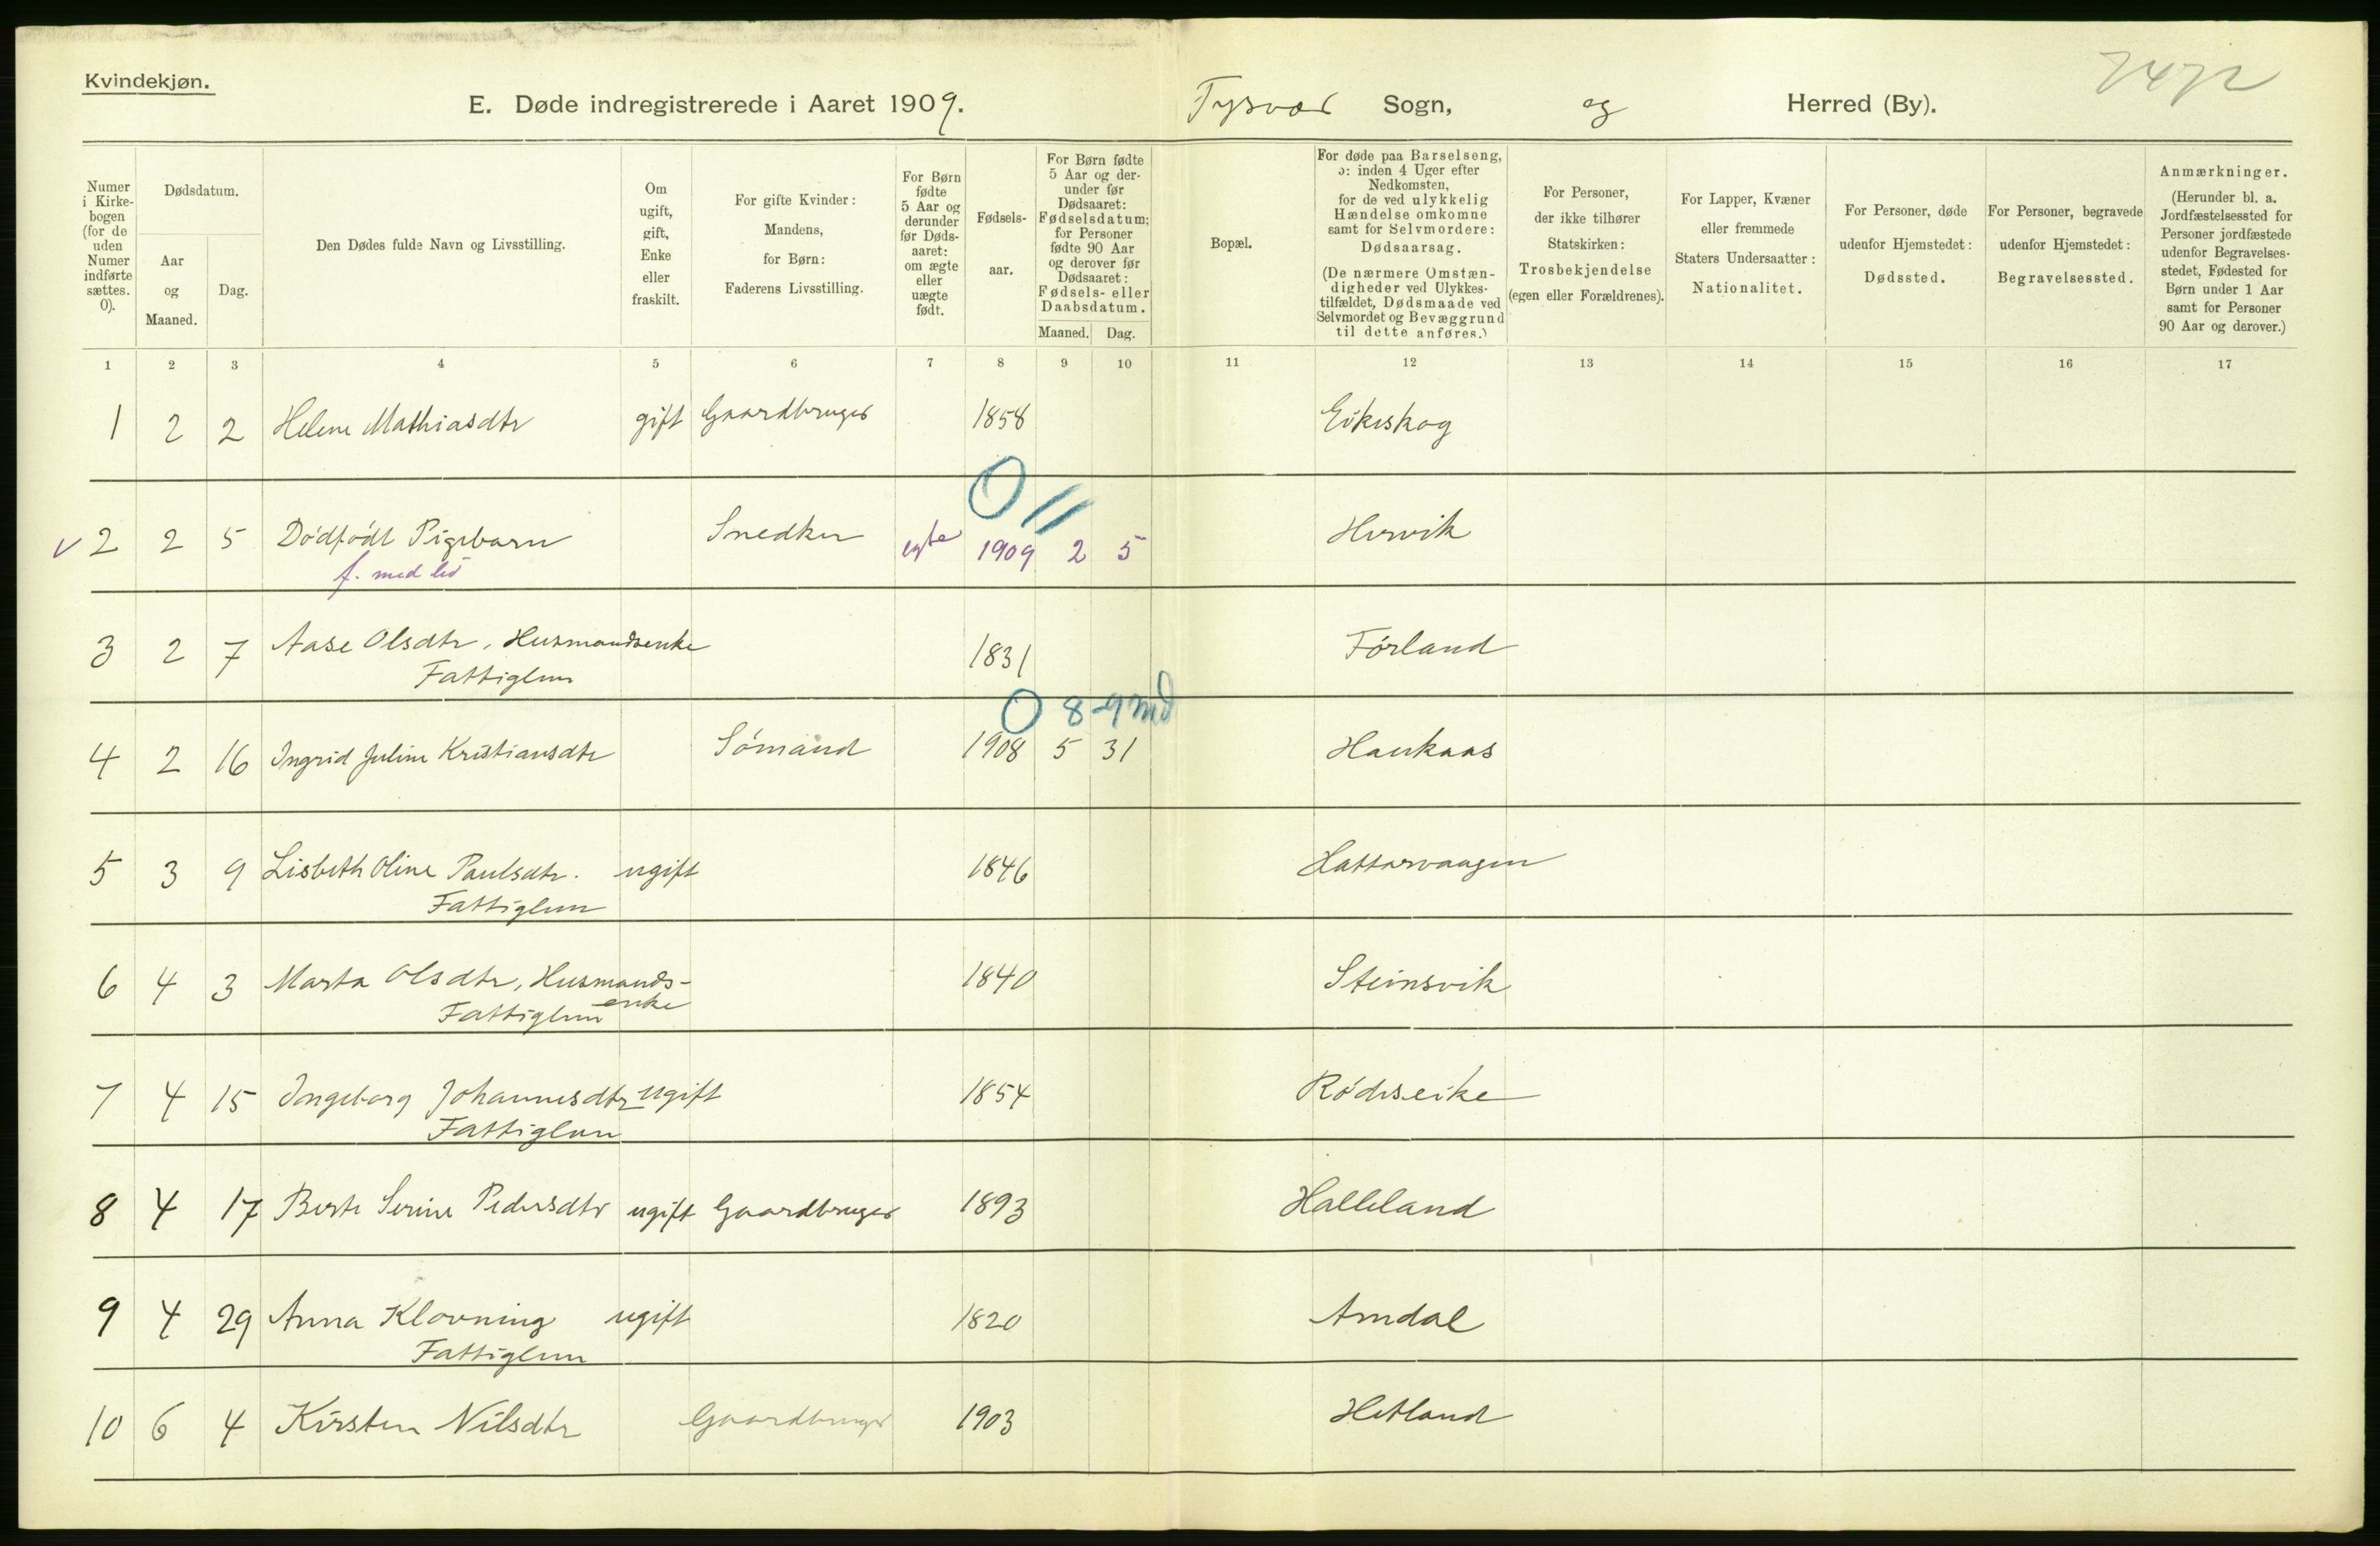 Kvindekjøn.
7472
E. Døde indregistrerede i Aaret 1909. Tysvær Sogn, og Herred (By).
Numer i Kirke-bogen (for de uden Numer indførte sættes. 0).
Dødsdatum.
Aar og Maaned.
Dag.
Den Dødes fulde Navn og Livsstilling.
Om ugift, gift, Enke eller fraskilt.
For gifte Kvinder: Mandens, for Børn: Faderens Livsstilling.
For Børn fødte 5 Aar og derunder før Døds-aaret: om ægte eller uægte født.
Fødsels-aar.
For Børn fødte 5 Aar og der-under før Dødsaaret: Fødselsdatum; for Personer fødte 90 Aar og derover før Dødsaaret: Fødsels- eller Daabsdatum.
Maaned. Dag.
Bopæl.
For døde paa Barselseng, ɔ: inden 4 Uger efter Nedkomsten, for de ved ulykkelig Hændelse omkomne samt for Selvmordere: Dødsaarsag. (De nærmere Omstæn-digheder ved Ulykkes-tilfældet, Dødsmaade ved Selvmordet og Bevæggrund til dette anføres.)
For Personer, der ikke tilhører Statskirken: Trosbekjendelse (egen eller Forældrenes).
For Lapper, Kvæner eller fremmede Staters Undersaatter: Nationalitet.
For Personer, døde udenfor Hjemstedet: Dødssted.
For Personer, begravede udenfor Hjemstedet: Begravelsessted.
Anmærkninger. (Herunder bl. a. Jordfæstelsessted for Personer jordfæstede udenfor Begravelses-stedet, Fødested for Børn under 1 Aar samt for Personer 90 Aar og derover.)
1 2 3 4 5 6 7 8 9 10 11 12 13 14 15 16 17
1 2 2 Helene Mathiasdtr gift Gaardbruger 1858 Eikeskog
0 11
✓ 2 2 5 Dødfødt Pigebarn Snedker egte 1909 2 5 Hervik
f. med liv
3 2 7 Aase Olsdtr, Husmandsenke 1831 Førland
Fattiglem
0 8-9 md
4 2 16 Ingrid Juline Kristiansdtr Sømand 1908 5 31 Haukaas
5 3 9 Lisbeth Oline Paulsdtr. ugift 1846 Hattarvaagen
Fattiglem
6 4 3 Marta Olsdtr, Husmands- 1840 Steinsvik
Fattiglem enke
7 4 15 Ingeborg Johannesdtr ugift 1854 Rødseike
Fattiglem
8 4 17 Berte Serine Pedersdtr ugift Gaardbruger 1893 Halleland
9 4 29 Anna Klovning ugift 1820 Amdal
Fattiglem
10 6 4 Kirsten Nilsdtr Gaardbruger 1903 Hetland